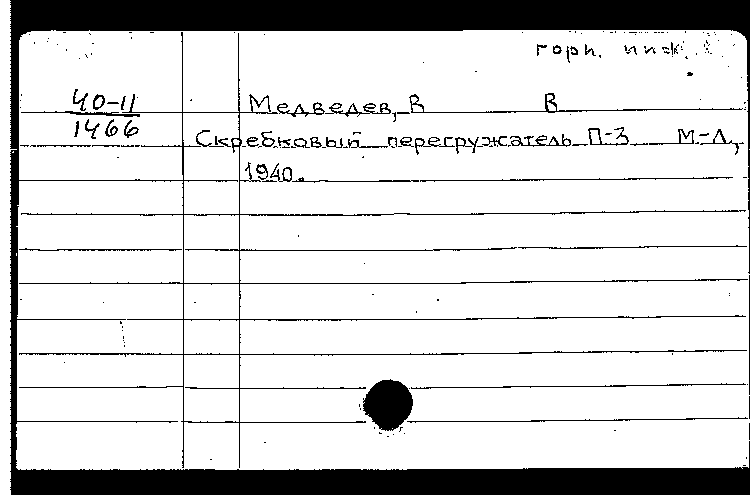 горн. инж.
40-11
1466
Медведев, В В
Скребковый перегружатель П-3 М-Л,
1940.